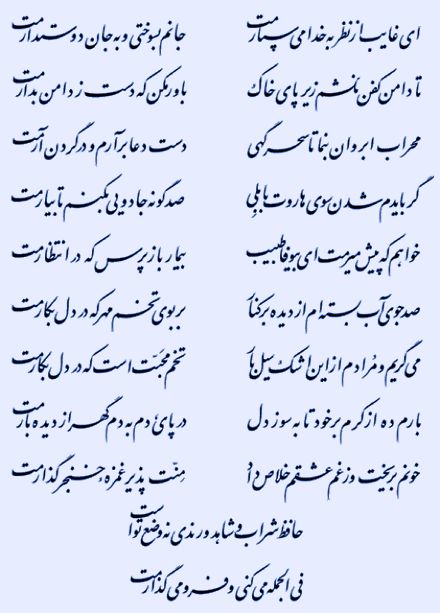 ای غایب از نظر به خدا می سپارمت جانم بسوختی و به جان دوست دارمت
تا دامن کفن نکشم زیر پای خاک باور مکن که دست ز دامن بدارمت
محراب ابروان بنما تا سحرگهی دست دعا برآرم و در گردن آرمت
گر بایدم شدن سوی هاروت بابلی صد گونه جادویی بکنم تا بیارمت
خواهم که پیش میرمت ای بیوفا طبیب بیمار باز پرس که در انتظارمت
صد جوی آب بسته ام از دیده بر کنار بر بوی تخم مهر که در دل بکارمت
می گریم و مرادم از این اشک سیل بار تخم محبت است که در دل بکارمت
بارم ده از کرم بر خود تا به سوز دل در پای دم به دم گهر از دیده بارمت
خونم بریخت وز غم عشقم خلاص داد منت پذیر غمزه خنجر گذارمت
حافظ شراب و شاهد و رندی نه وضع توست
فی الجمله می کنی و فرو می گذارمت